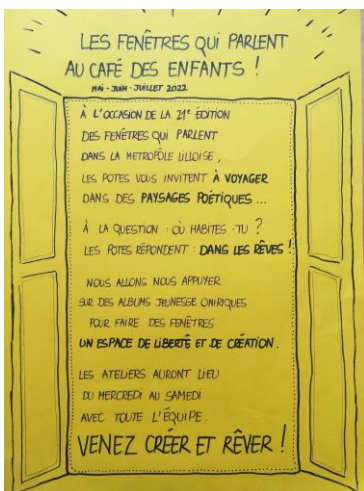 LES FENÊTRES QUI PARLENT
AU CAFÉ DES ENFANTS !
MAI - JUIN - JUILLET 2022
À L'OCCASION DE LA 21e ÉDITION
DES FENÊTRES QUI PARLENT
DANS LA METROPÔLE LILLOISE,
LES POTES VOUS INVITENT À VOYAGER
DANS DES PAYSAGES POÉTIQUES ...
À LA QUESTION : OÙ HABITES-TU ?
LES POTES RÉPONDENT : DANS LES RÊVES !
NOUS ALLONS NOUS APPUYER
SUR DES ALBUMS JEUNESSE ONIRIQUES
POUR FAIRE DES FENÊTRES
UN ESPACE DE LIBERTÉ ET DE CRÉATION.
LES ATELIERS AURONT LIEU
DU MERCREDI AU SAMEDI
AVEC TOUTE L'ÉQUIPE.
VENEZ CRÉER ET RÊVER !